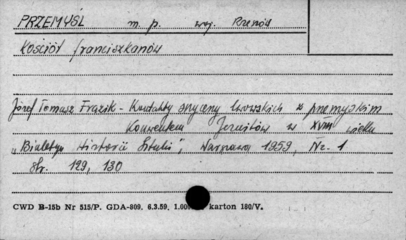 PRZEMYŚL m. p. woj. Rzeszów
Kościół franciszkanów
Józef Tomasz Frazik - Kontakty snycerzy lwowskich z przemyskim
Konwentem Jezuitów w XVIII wieku
"Biuletyn Historii Sztuki", Warszawa 1959, Nr. 1
str. 129, 130
CWD B-15b Nr 515/P. GDA-809. 6.3.59. 1.000 karton 180/V.